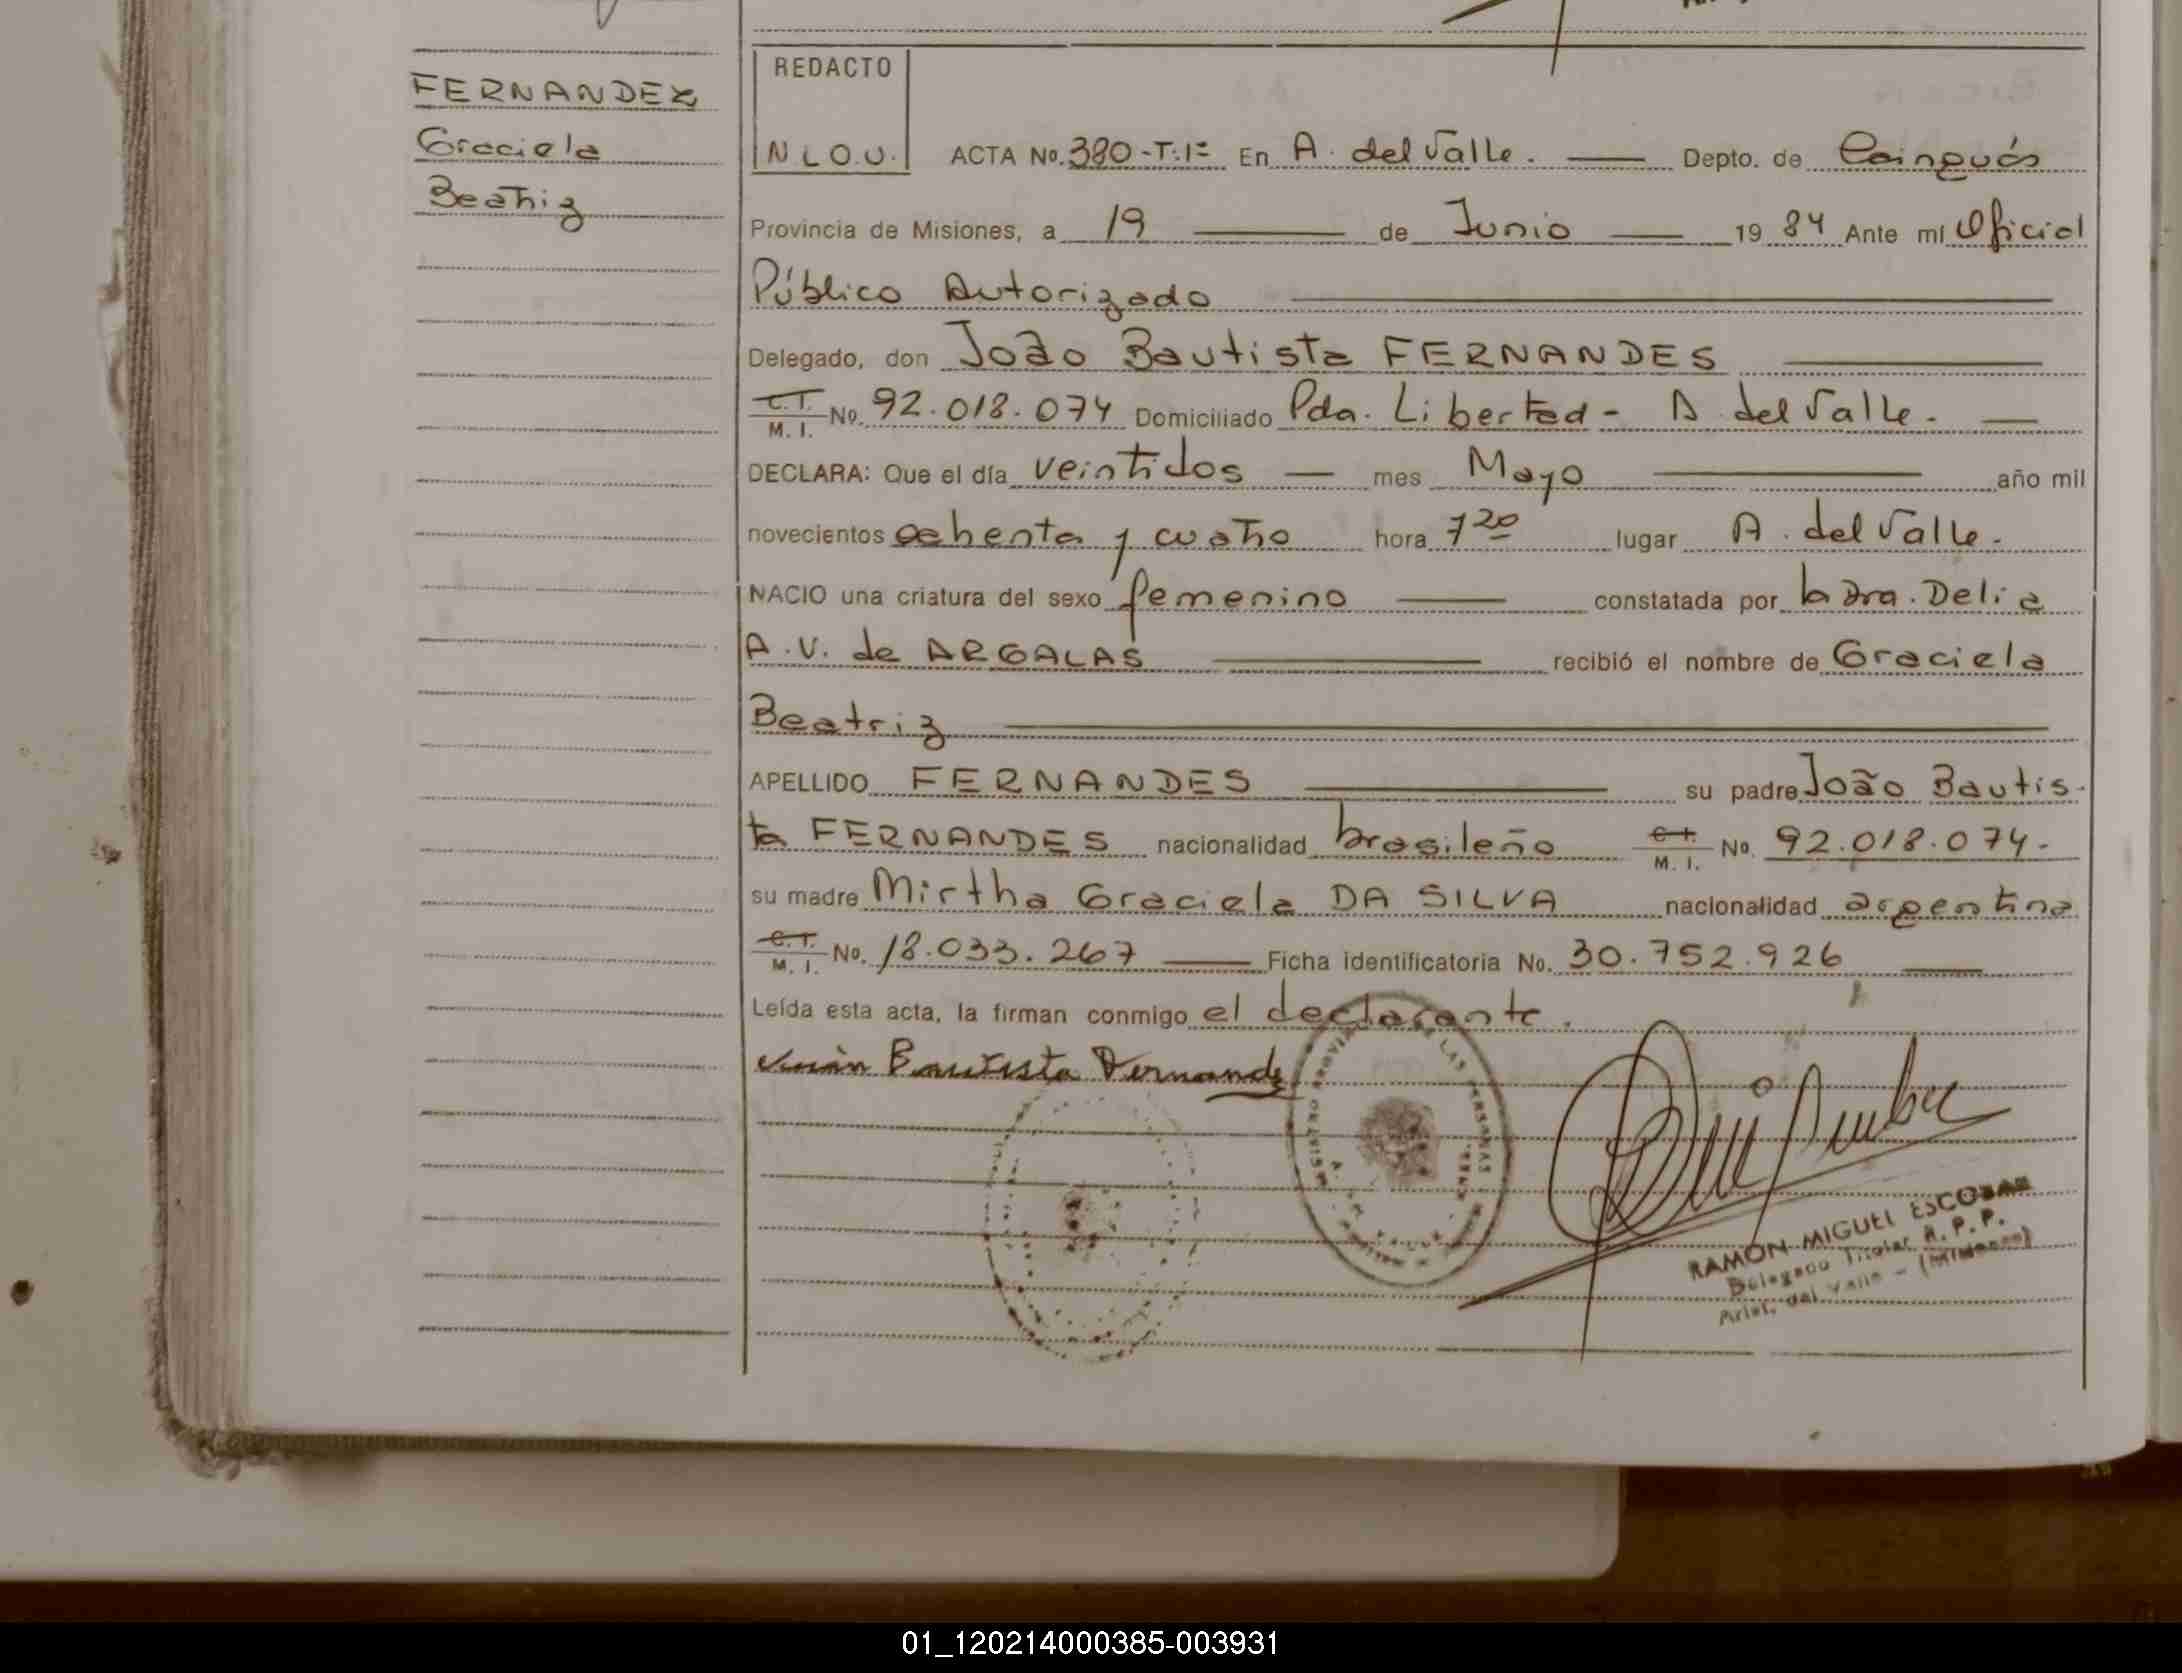 FERNANDEZ
Graciela
Beatriz
REDACTO
N L O.U.
ACTA No. 380-T:1º En A. del Valle. Depto. de Cainguás
Provincia de Misiones, a 19 de Junio 19 84 Ante mí Oficial
Público Autorizado
Delegado, don João Bautista FERNANDES
C.T. / M. I. No. 92.018.074 Domiciliado Pda. Libertad - A. del Valle.
DECLARA: Que el día veintidos mes Mayo año mil
novecientos ochenta y cuatro hora 7 20 lugar A. del Valle.
NACIO una criatura del sexo femenino constatada por la Dra. Delia
A.V. de ARGALAS recibió el nombre de Graciela
Beatriz
APELLIDO FERNANDES su padre João Bautis-
ta FERNANDES nacionalidad brasileño C.T. / M. I. No. 92.018.074.-
su madre Mirtha Graciela DA SILVA nacionalidad argentina
C.T. / M. I. No. 18.033.267 Ficha identificatoria No. 30.752.926
Leída esta acta, la firman conmigo el declarante.
Juán Bautista Fernandes
RAMON MIGUEL ESCOBAR
Delegado Titular R. P. P.
Arist. del Valle - (Misiones)
01_120214000385-003931